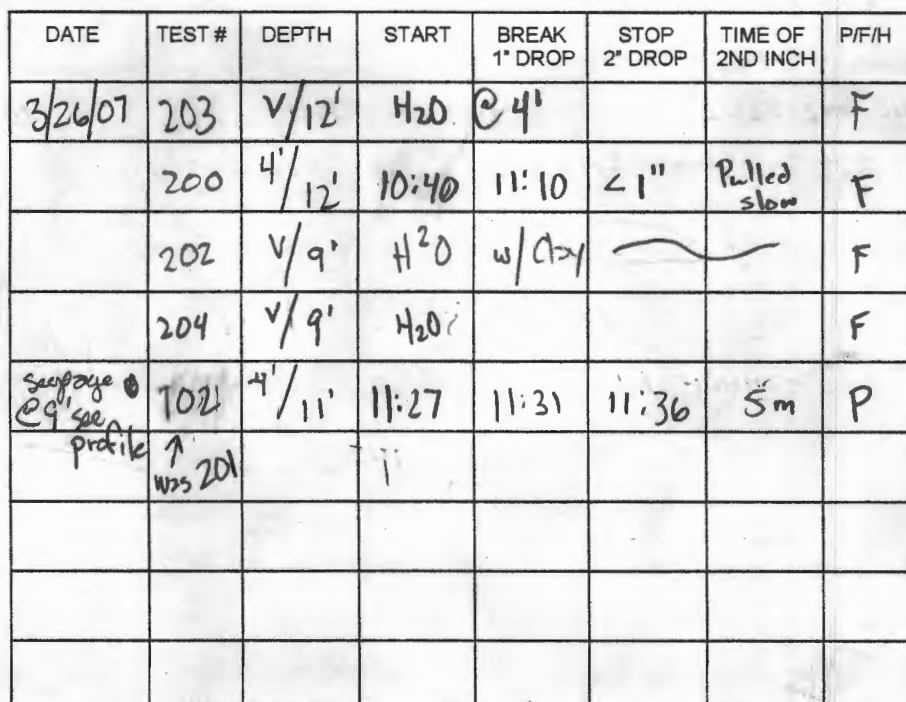 DATE TEST # DEPTH START BREAK 1" DROP STOP 2" DROP TIME OF 2ND INCH P/F/H
3/26/07 203 V/12' H2O @ 4' F
200 4'/12' 10:40 11:10 <1" Pulled slow F
202 V/9' H2O w/ Clay F
204 V/9' H2O F
seepage @ 9' see profile 1021 4'/11' 11:27 11:31 11:36 5m P
↑ was 201